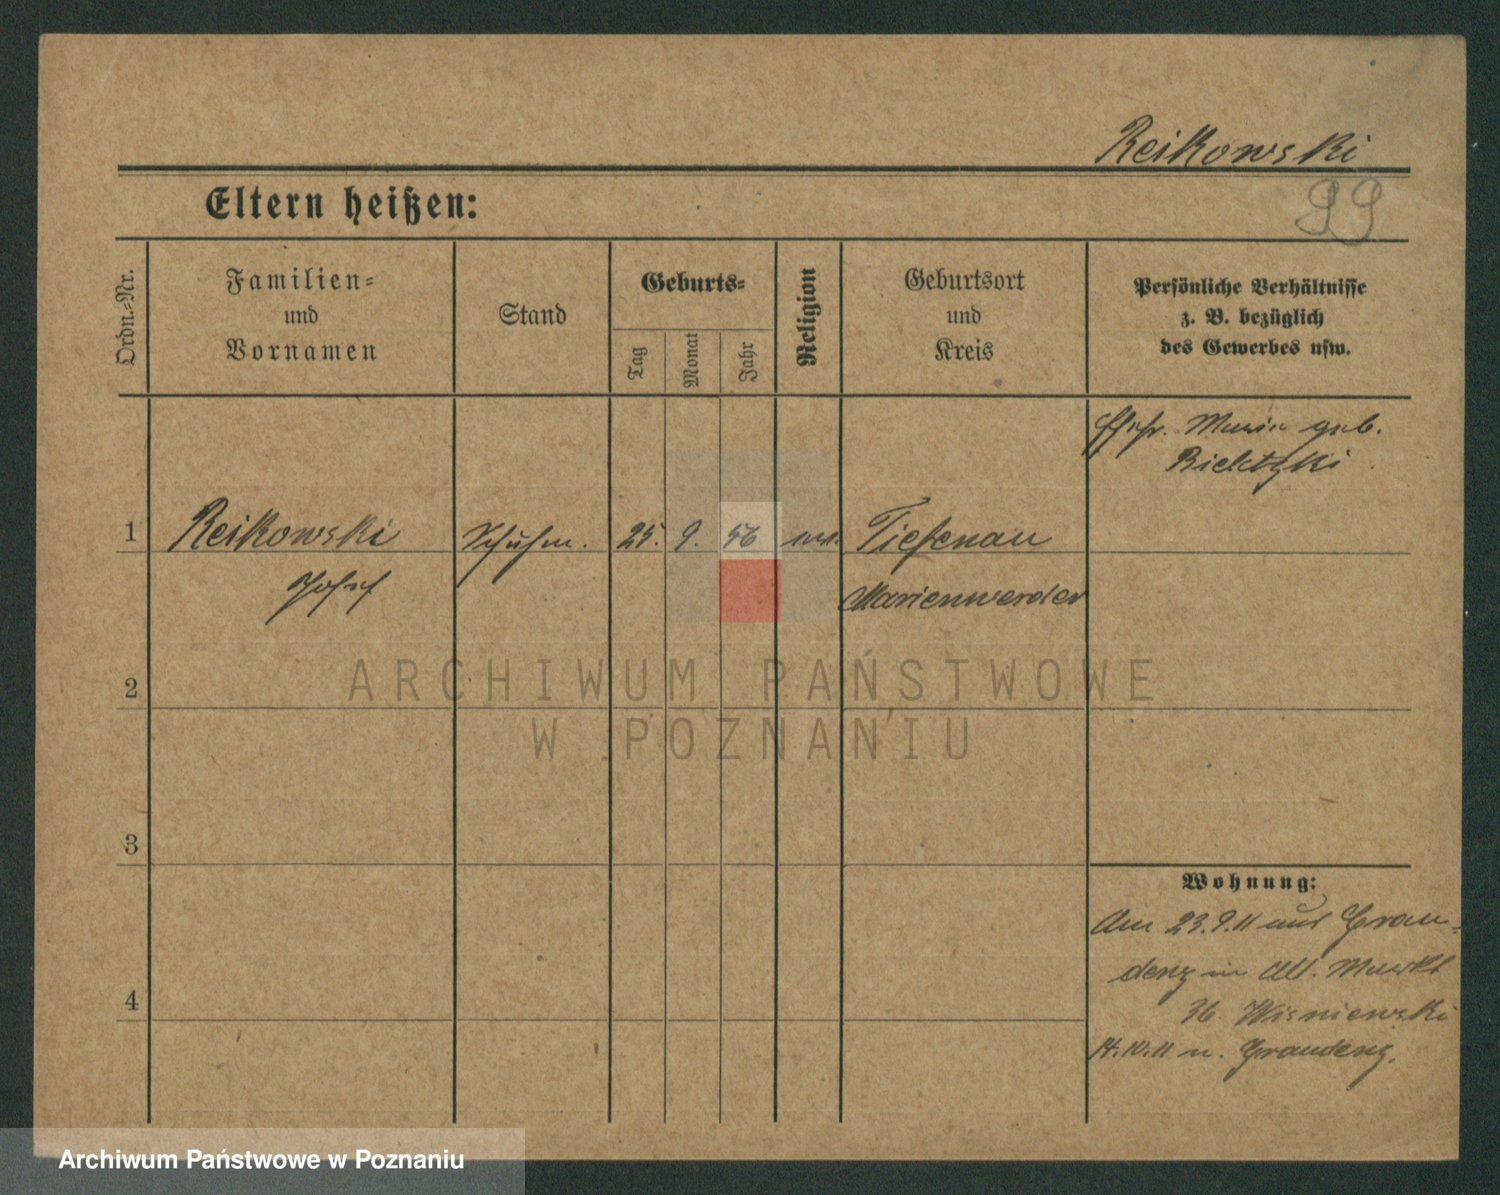 Reikowski
99
Eltern heißen:
Ordn.-Nr.
Familien-
und
Vornamen
Stand
Geburts-
Tag
Monat
Jahr
Religion
Geburtsort
und
Kreis
Persönliche Verhältnisse
z. B. bezüglich
des Gewerbes usw.
Ehefr. Maria geb.
1
Reikowski
Schuhm.
25.
9.
56
Tiefenau
Josef
Marienwerder
2
ARCHIWUM PAŃSTWOWE
W POZNANIU
3
Wohnung:
Am 23.9.11 aus Grau-
denz in Alt. Markt
36. Wisniewski
14.10.11 n. Graudenz.
4
Archiwum Państwowe w Poznaniu